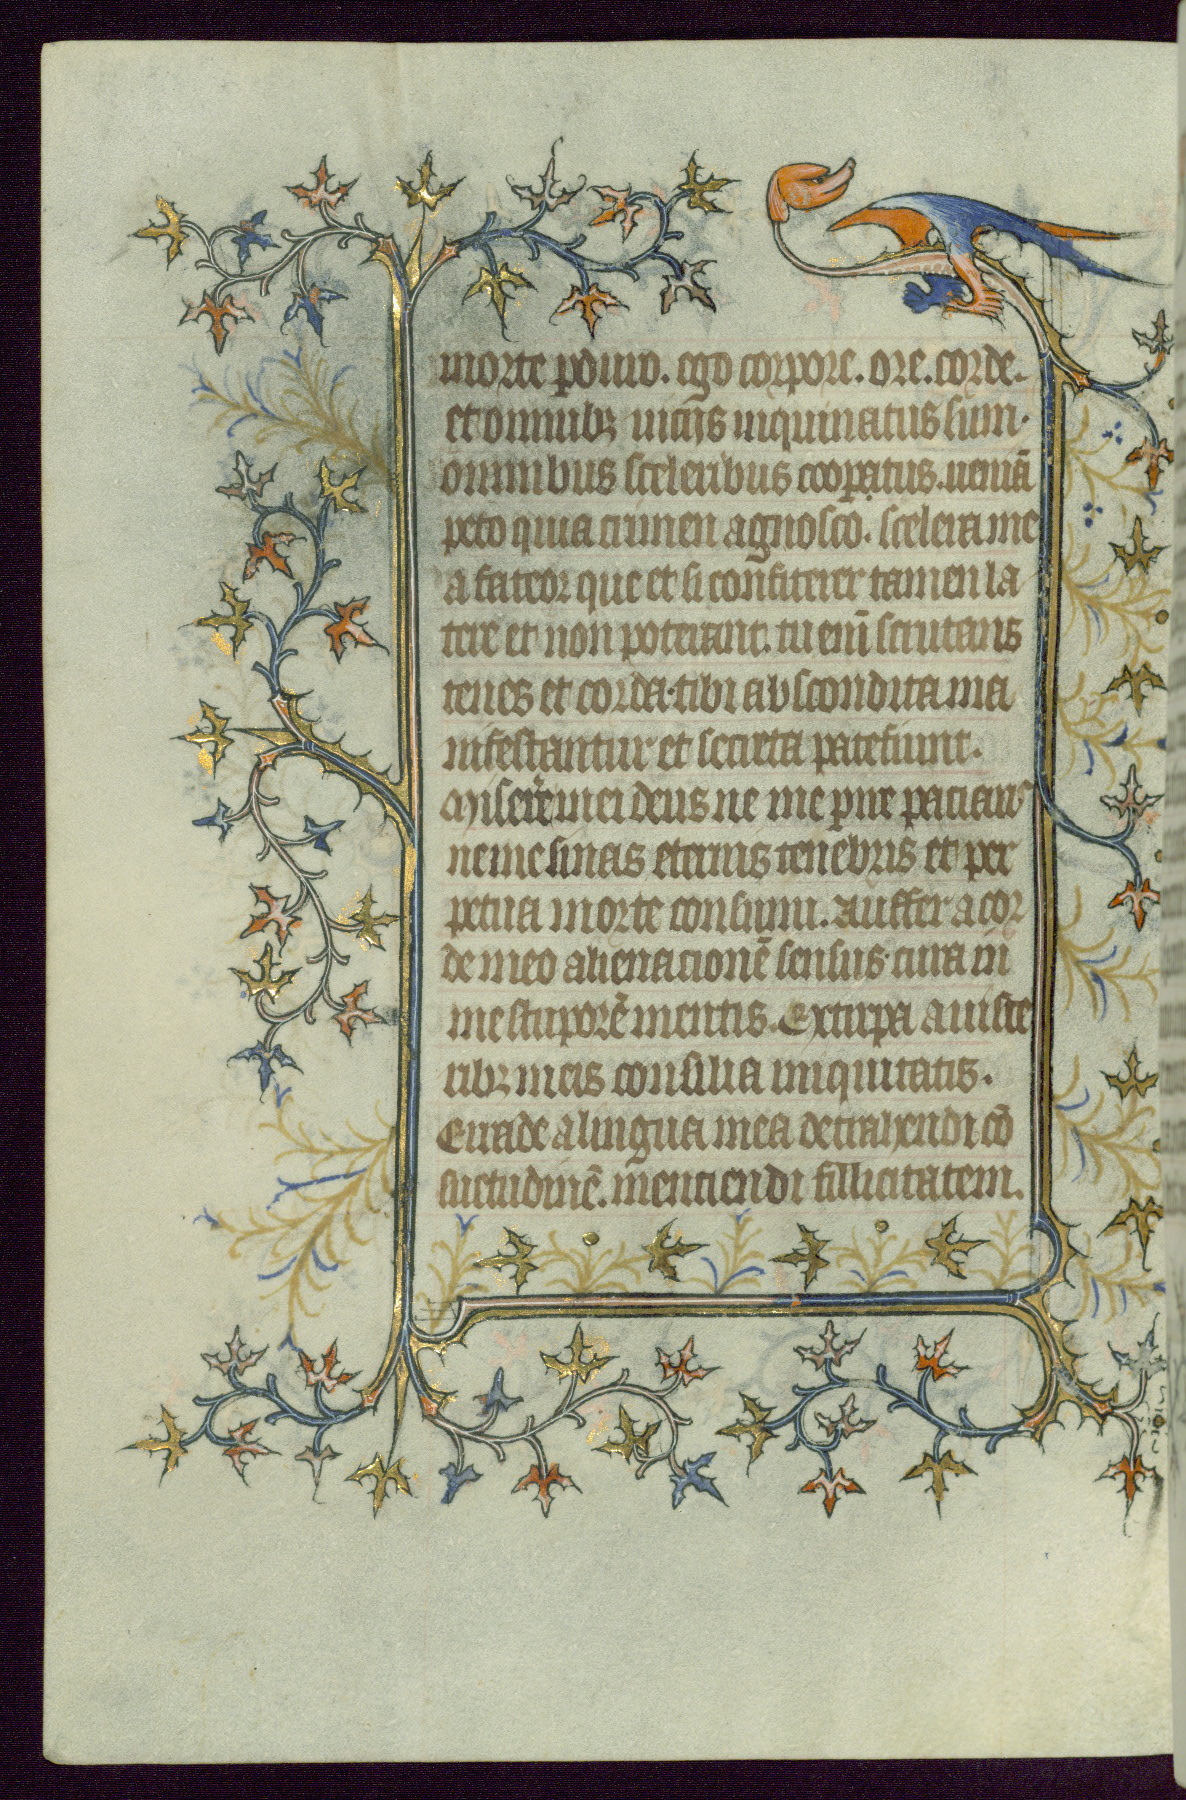 morte pduio. ego corpore. ore. corde.
et omnibꝫ uiciis inquinatus sum.
omnibus sceleribus coop̄atus. ueniā
peto quia crimen agnosco. scelera me
a fateor que et si confiterer tamen la
tere et non poterant. tu eni᷑ scrutans
renes et corda. tibi abscondita ma
nifestantur et secreta patefiunt.
Miserē mei deus ne me p̄ire paciaris
ne me sinas eternis tenebris et per
petua morte consumi. Auffer a cor
de meo alienacionē sensus. cura in
me stuporē mentis. Extirpa a uisce
ribꝫ meis consilia iniquitatis.
Eurade a lingua mea detrahendi cō
suetudinē. menciendi fillicitatem.